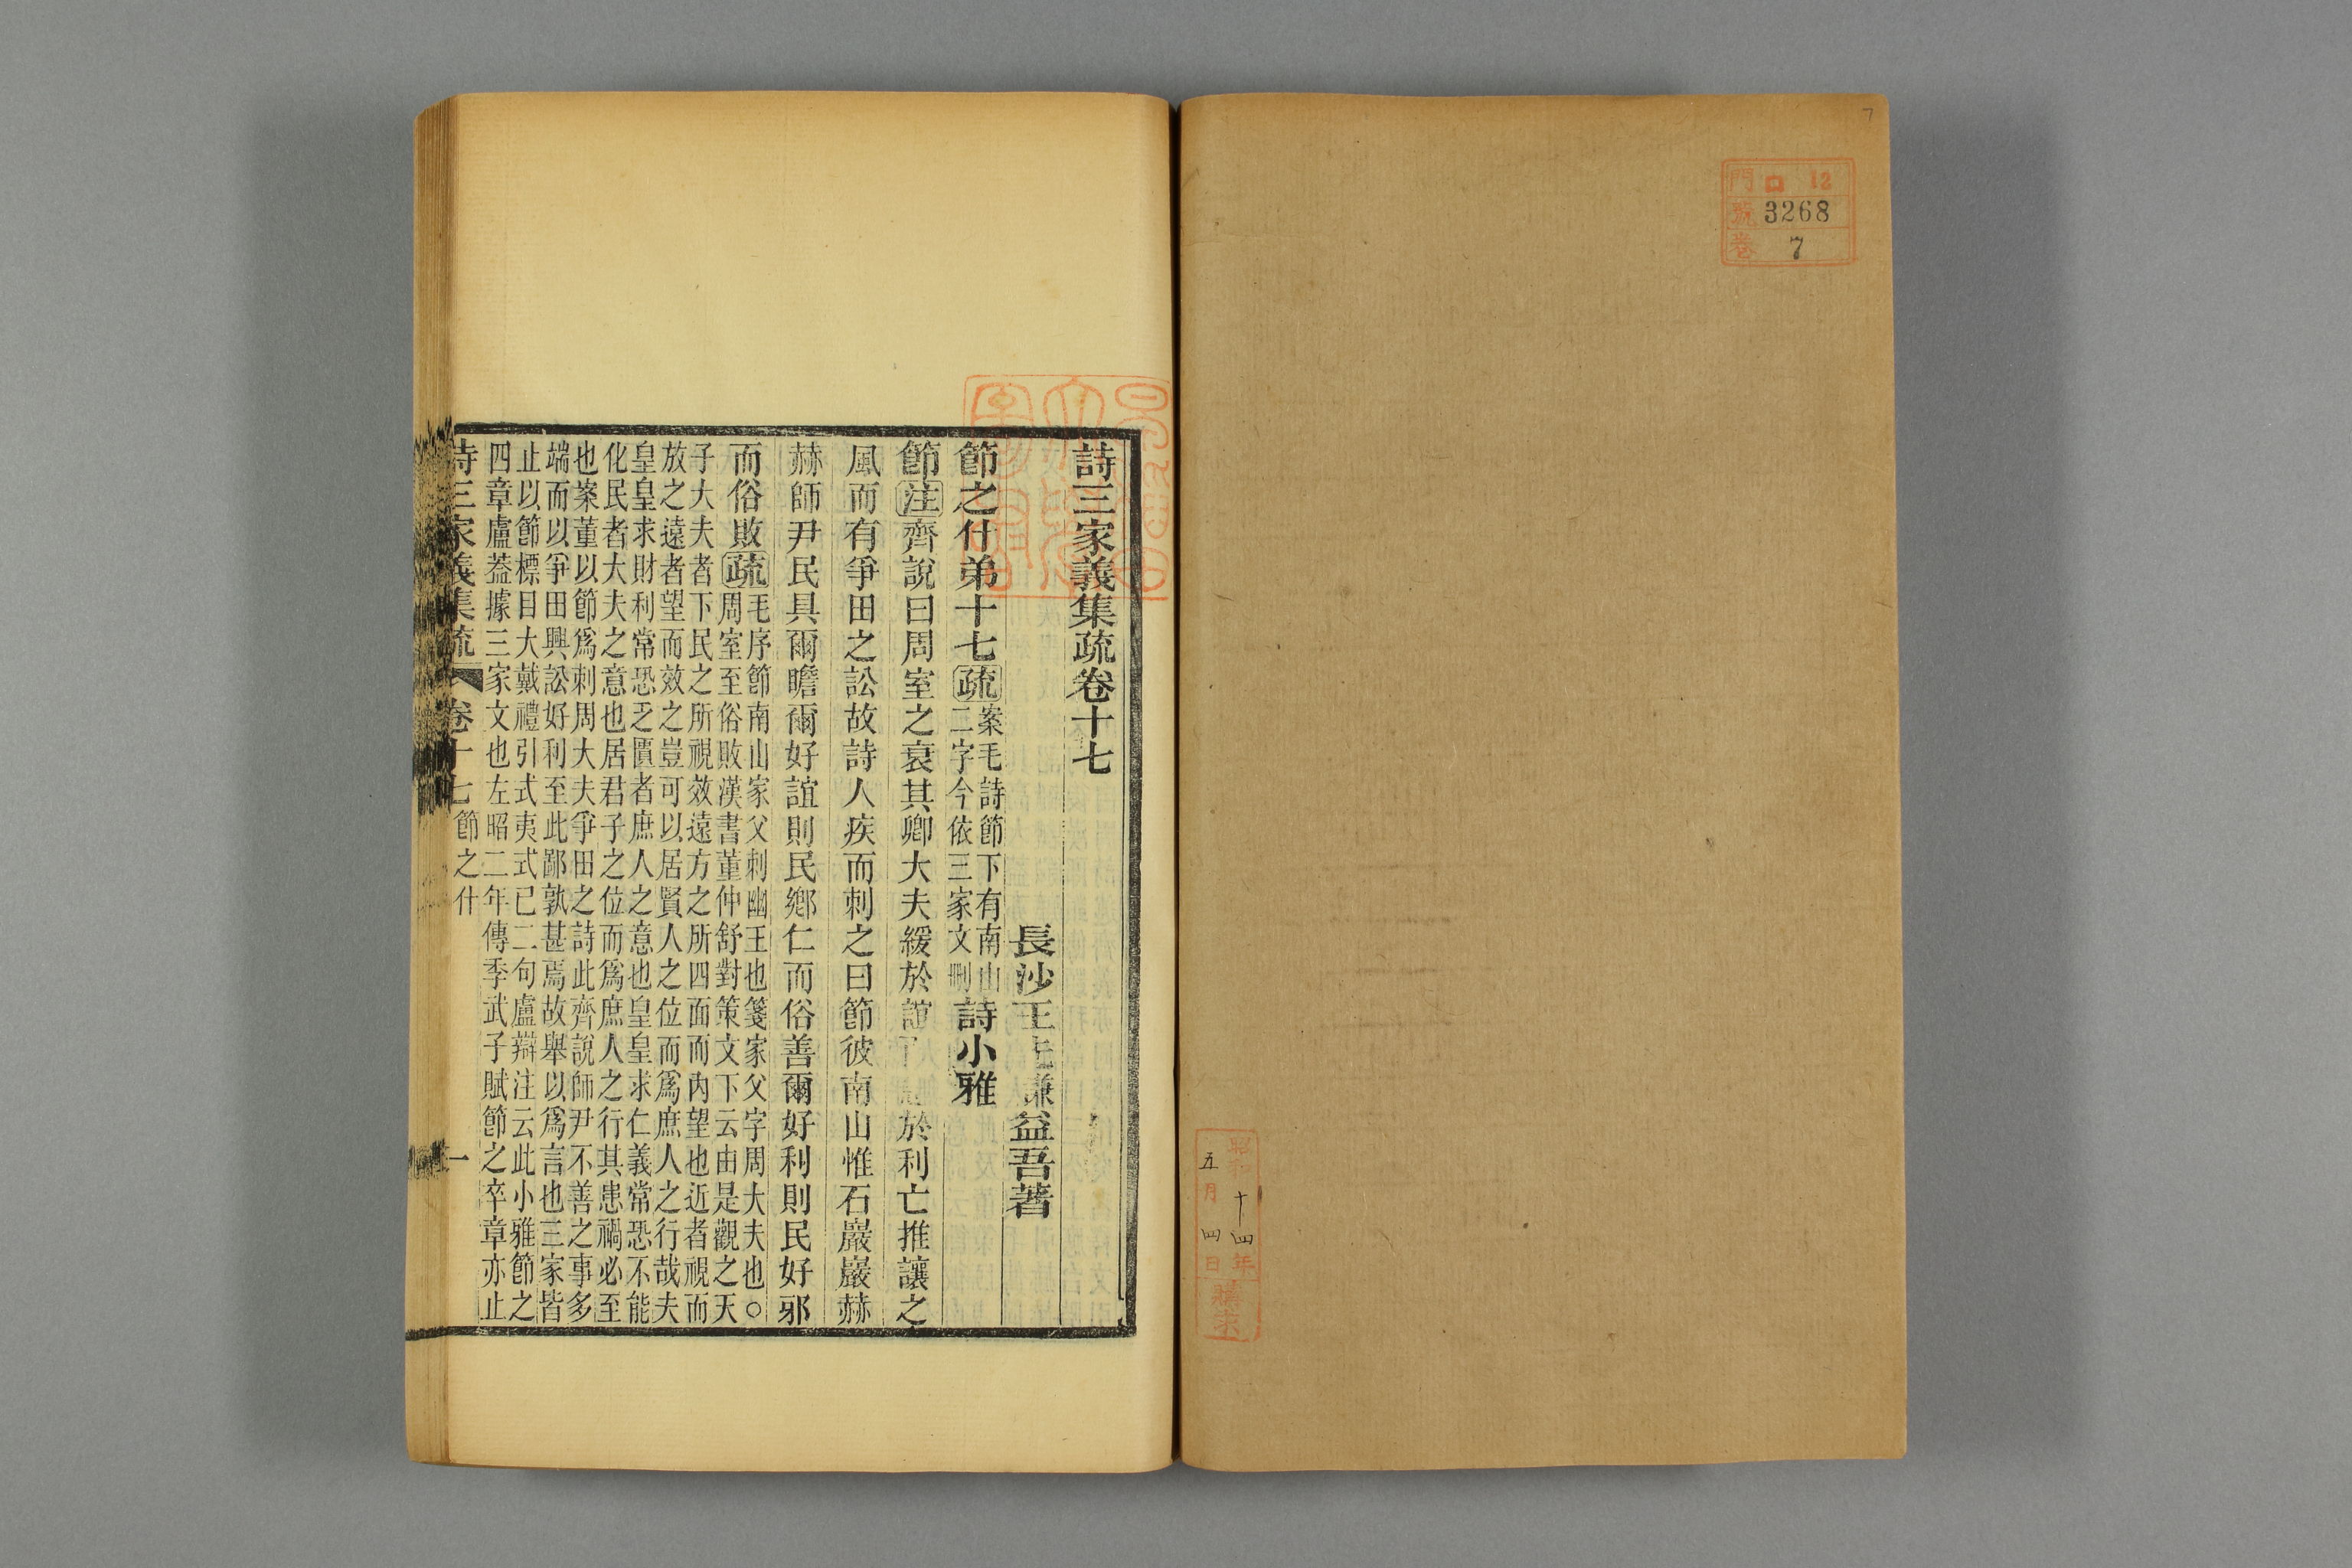 7
門 ロ 12
號 3268
卷 7
昭和十四年
五月四日
購求
詩三家義集疏卷十七
長沙王先謙益吾著
節之什弟十七疏案毛詩節下有南山
二字今依三家文刪詩小雅
節注齊說曰周室之衰其卿大夫緩於誼而急於利亡推讓之
風而有爭田之訟故詩人疾而刺之曰節彼南山惟石巖巖赫
赫師尹民具爾瞻爾好誼則民鄉仁而俗善爾好利則民好邪
而俗敗疏毛序節南山家父刺幽王也箋家父字周大夫也○
周室至俗敗漢書董仲舒對策文下云由是觀之天
子大夫者下民之所視效遠方之所四面而內望也近者視而
放之遠者望而效之豈可以居賢人之位而爲庶人之行哉夫
皇皇求財利常恐乏匱者庶人之意也皇皇求仁義常恐不能
化民者大夫之意也居君子之位而爲庶人之行其患禍必至
也案董以節爲刺周大夫爭田之詩此齊說師尹不善之事多
端而以爭田興訟好利至此鄙孰甚焉故舉以爲言也三家皆
止以節標目大戴禮引式夷式已二句盧辯注云此小雅節之
四章盧葢據三家文也左昭二年傳季武子賦節之卒章亦止
詩三家義集疏 卷十七 節之什 一